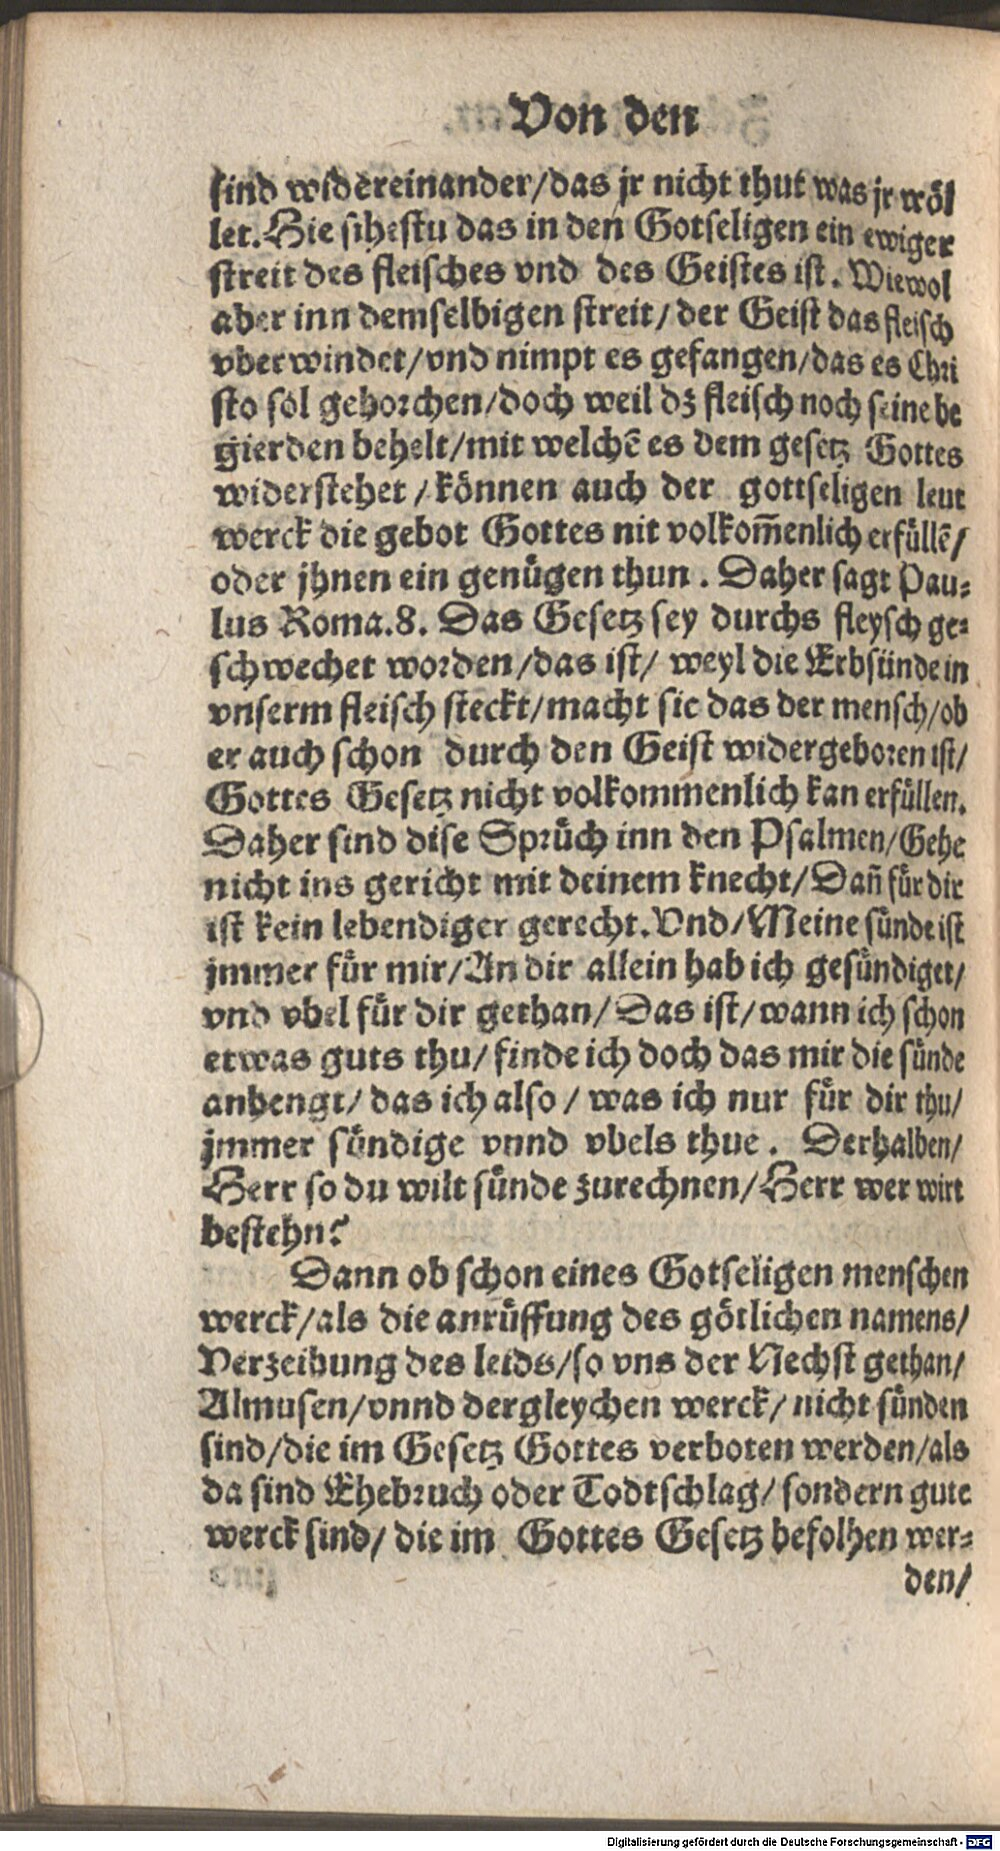 Von den
sind widereinander/das jr nicht thut was jr wöl
let. Hie sihestu das in den Gotseligen ein ewiger
streit des fleisches vnd des Geistes ist. Wiewol
aber inn demselbigen streit/der Geist das fleisch
vberwindet/vnd nimpt es gefangen/das es Chri
sto söl gehorchen/doch weil dz fleisch noch seine be
gierden behelt/mit welchē es dem gesetz Gottes
widerstehet/können auch der gottseligen leut
werck die gebot Gottes nit volkom̄enlich erfüllē/
oder jhnen ein genügen thun. Daher sagt Pau-
lus Roma.8. Das Gesetz sey durchs fleysch ge-
schwechet worden/das ist/ weyl die Erbsünde in
vnserm fleisch steckt/macht sie das der mensch/ob
er auch schon durch den Geist widergeboren ist/
Gottes Gesetz nicht volkommenlich kan erfüllen.
Daher sind dise Sprüch inn den Psalmen/Gehe
nicht ins gericht mit deinem knecht/Dañ für dir
ist kein lebendiger gerecht. Vnd/Meine sünde ist
jmmer für mir/An dir allein hab ich gesündiget/
vnd vbel für dir gethan/Das ist/wann ich schon
etwas guts thu/finde ich doch das mir die sünde
anhengt/das ich also/was ich nur für dir thu/
jmmer sündige vnnd vbels thue. Derhalben/
Herr so du wilt sünde zurechnen/Herr wer wirt
bestehn?
Dann ob schon eines Gotseligen menschen
werck/als die anrüffung des götlichen namens/
Verzeihung des leids/so vns der Nechst gethan/
Almusen/vnnd dergleychen werck/nicht sünden
sind/die im Gesetz Gottes verboten werden/als
da sind Ehebruch oder Todtschlag/sondern gute
werck sind/die im Gottes Gesetz befolhen wer-
den/
Digitalisierung gefördert durch die Deutsche Forschungsgemeinschaft - DFG